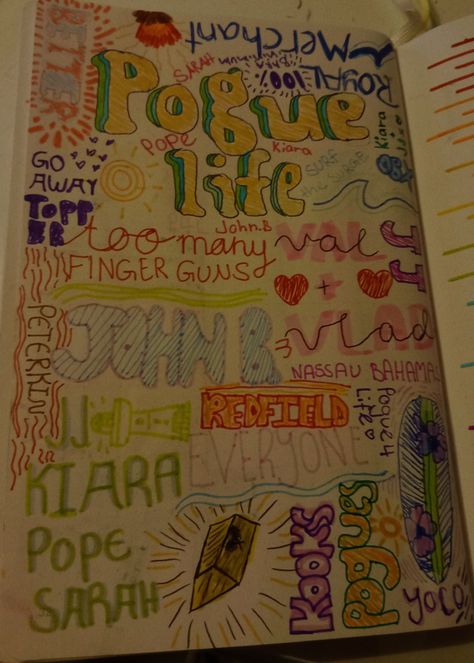 BETTER
Merchant
SARAH
ROYAL
100%
Pogue
life
POPE
Kiara
Kiara
SURF
the SURGE
GO
AWAY
TOPP
ER
John.B
too many
FINGER GUNS
VAL
val
JJ
+
VLAD
vlad
PETERKIN
JOHN B
NASSAU BAHAMAS
JJ
REDFIELD
Pogue 4
Life
KIARA
EVERYONE
POPE
SARAH
KOOKS
POGUES
YOLO